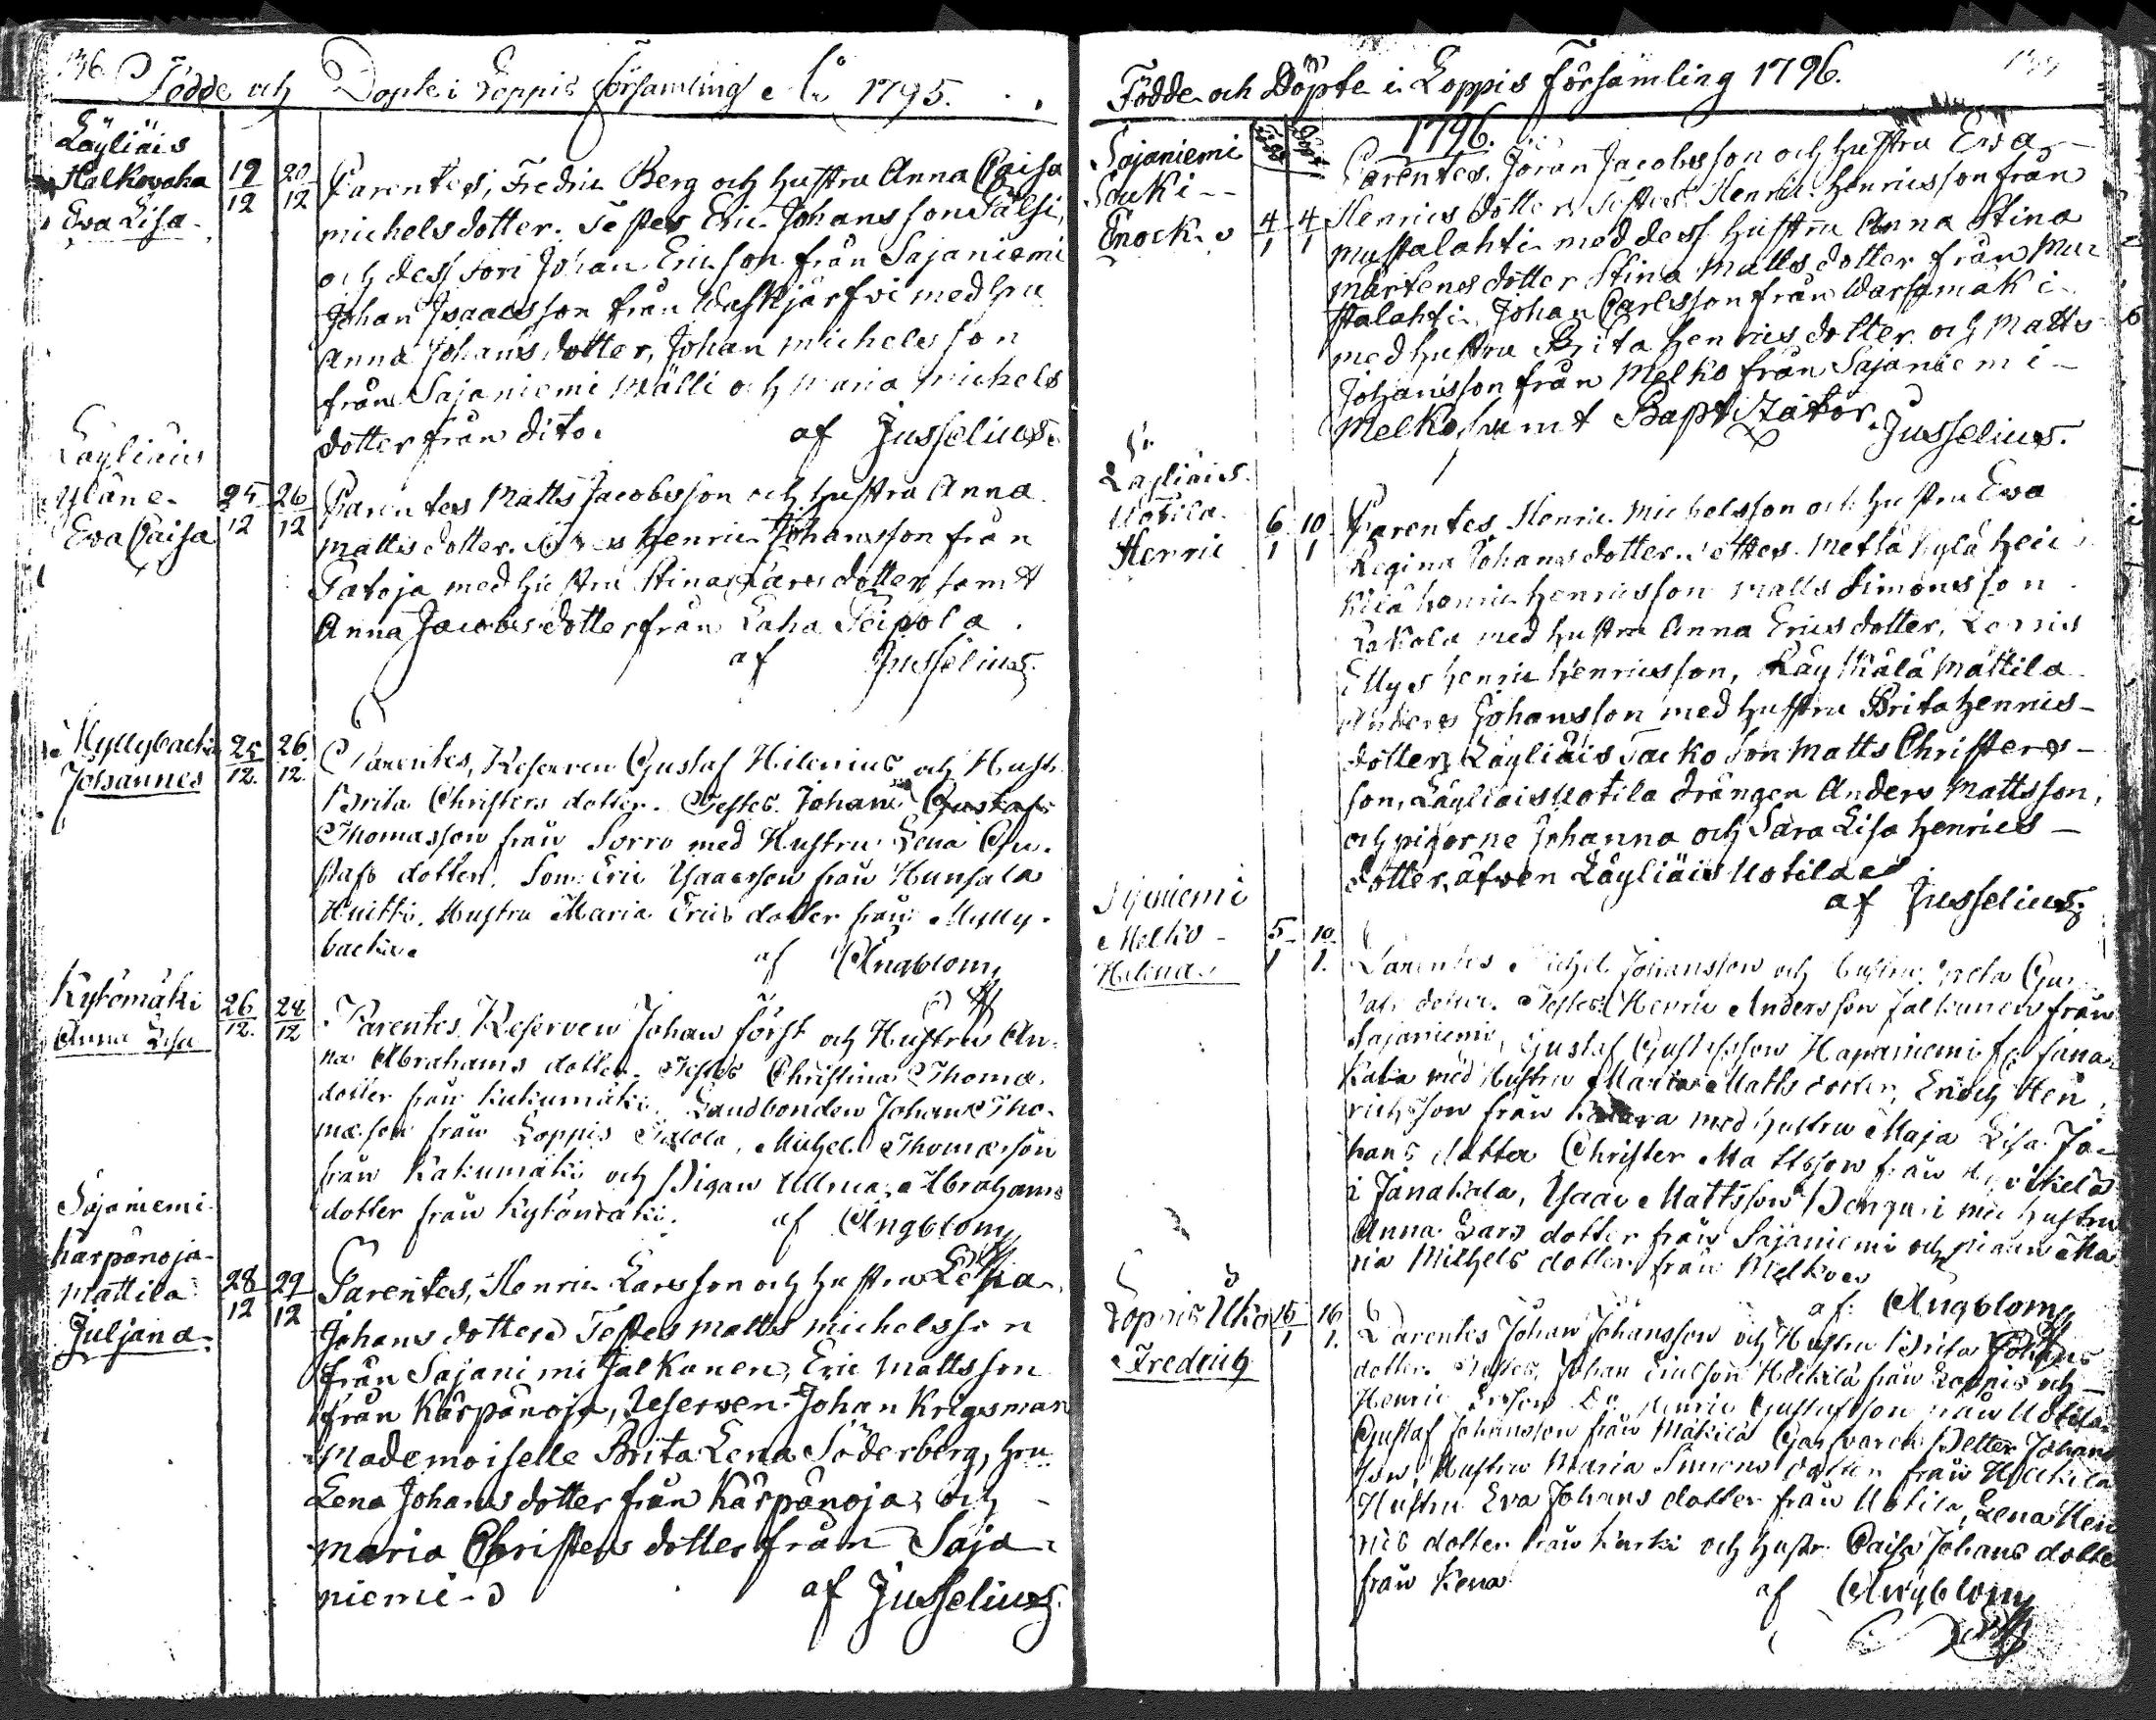 136. Födde och Döpte i Loppis Församling Åhr 1795.
Läyliäis
Halkovaha
Ewa Lisa
19/12 20/12
Parentes, Fredric Berg och hustru Anna Caisa
michelsdotter. Testes Eric Johansson Pälsi,
och dess son Johan Ericsson från Sajaniemi
Johan Isaacsson från Waskjärfvi med hru
Anna Johansdotter, Johan michelsson
från Sajaniemi Mälli och Maria michels
dotter från dito.
af Jusselius.
Läyliäis
Yläne
Ewa Caisa
25/12 26/12
Parentes Matts Jacobsson och hustru Anna
mattsdotter. Testes Henric Johansson från
Tatoja med hustru Stina Larsdotter samt
Anna Jacobsdotter från Laha Teipola.
af Jusselius.
Myllybacka
Johannes
25/12. 26/12.
Parentes, Reserven Gustaf Hilenius och Hustr.
Brita Christers dotter. Testes. Johan
Thomasson från Sorro med Hustru Lena Gu-
stafs dotter. Son Eric Isaacsson från Hunsala
Huitti. Hustru Maria Erics dotter från Mylly-
backa.
af Ångblom
Kytömäki
Anna Lisa
26/12. 28/12
Parentes Reserven Johan Först och Hustru An-
na Abrahams dotter. Testes Christina Thoma
dotter från Kukumäki. Landbonden Johan Tho-
masson från Loppis Salola, Michel Thomasson
från Kakumäki och Pigan Ulrica Abrahams
dotter från Kytömäki.
af Ångblom
Sajaniemi
Kärpänoja
Mattila
Juljana
28/12 29/12
Parentes, Henric Larsson och hustru Lena
Johansdotter. Testes Matts michelsson
från Sajanimi Jalkanen, Eric Mattsson
från Kärpänoja, Reserven Johan Krigsman
Mademoiselle Brita Lena Söderberg, hru
Lena Johansdotter från Kärpänoja, och
maria Christersdotter från Saja-
niemi.
af Jusselius.
Födde och Döpte i Loppis Församling 1796.
1796.
Född Döpt
Sajaniemi
Souki
Enock
4/1 4/1
Parentes. Jöran Jacobsson och hustru Ewa
Henricsdotter. Testes Henric Henricsson från
Mustalahti med dess hustru Anna Stina
Mårtensdotter Stina Mattsdotter från Mu-
stalahti. Johan Carlsson från Warsamäki
med hustru Brita Henricsdotter och Matts
Johansson från Melko från Sajaniemi
Melko, samt Baptizator.
Jusselius.
Läyliäis
Uotila
Henric
6/1 10/1
Parentes, Henric Michelsson och hustru Ewa
Regina Johansdotter. Testes. Metsä Kylä Heic
kilä Henric Henricsson Matts Simonsson
Kakola med hustru Anna Ericsdotter, Loppis
Ellys Henric Henricsson, Räyskälä Mattila
Anders Johansson med hustru Brita Henrics-
dotter, Läyliäis Jacko Son Matts Christers-
son, Läyliäis Uotila drängen Anders Mattsson,
och pigorne Johanna och Sara Lisa Henrics-
dotter, äfwen Läyliäis Uotila.
af Jusselius.
Sajaniemi
Melko
Helena
5/1 10/1.
Parentes Michel Johansson och hustru Greta Gu-
stafs dotter. Testes. Henric Andersson Jalkanen från
Sajaniemi, Gustaf Gustafsson Haparniemi fr. Jana-
kala med hustru Maria Matts dotter, Enoch Hen-
richsson från med hustru Maja Lisa Jo-
hans dotter Christer Mattsson från
i Janakala, Isaac Mattsson med hustru
Anna Lars dotter från Sajaniemi och pigan Ma-
ria Michels dotter från Melko.
af Ångblom
Loppis
Fredrich
15/1 16/1.
Parentes Johan Johansson och Hustru Brita Johans
dotter. Testes, Johan Ericsson Heickilä från Loppis och
Henric Ersson Do Henric Gustafsson från Uotila
Gustaf Johansson från Mäkilä Garfvaren Petter Johans
son, Hustru Maria Simons dotter från Heickilä
Hustru Eva Johans dotter från Uotila, Lena Hen
rics dotter från Kurki och hustr. Caisa Johans dotte
från Kena
af Ångblom